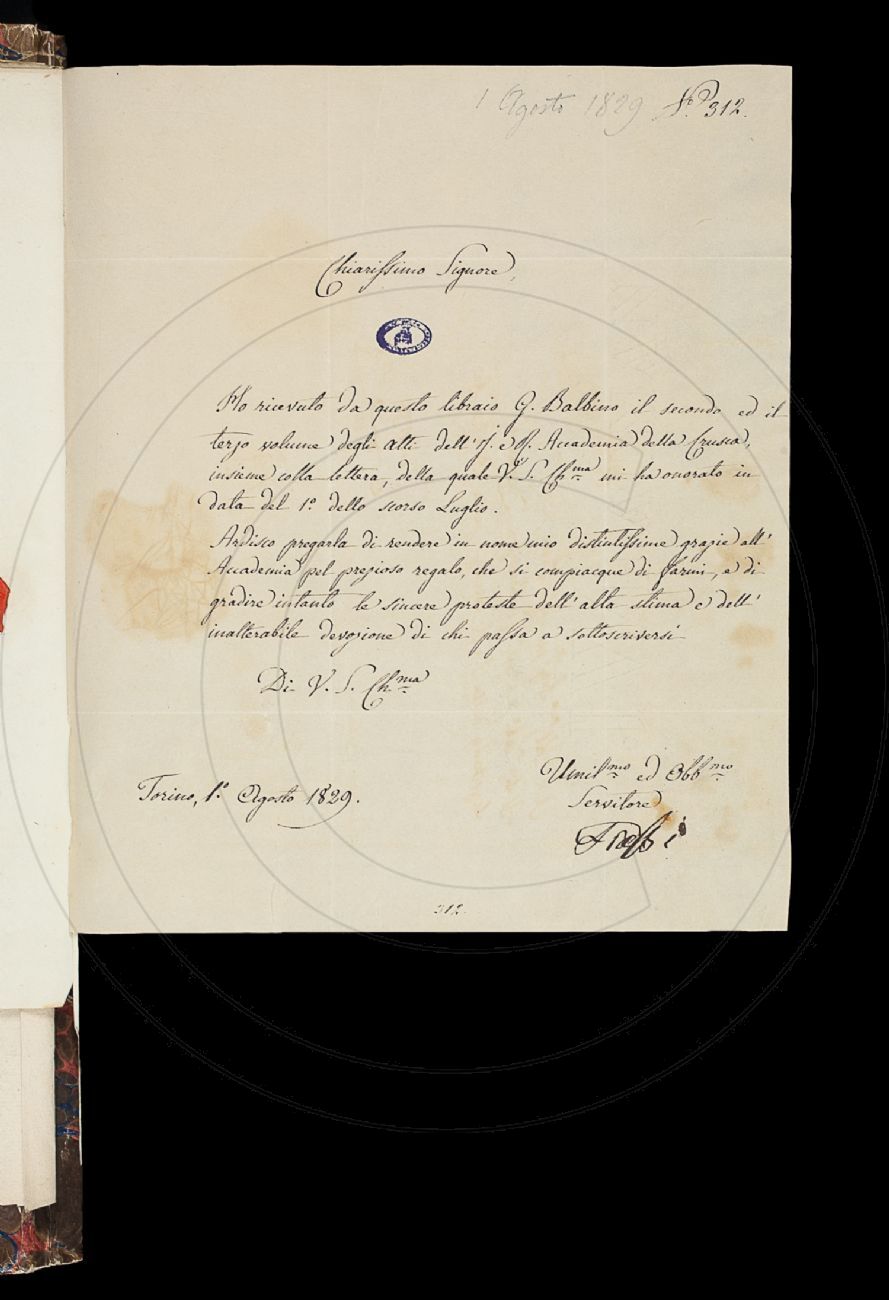 1 Agosto 1829 N.º 312.
Chiarissimo Signore,
Ho ricevuto da questo libraio G. Balbino il secondo ed il
terzo volume degli atti dell' I. e R. Accademia della Crusca,
insieme colla lettera, della quale V. S. Ch.ma mi ha onorato in
data del 1.º dello scorso Luglio.
Ardisco pregarla di rendere in nome mio distintissime grazie all'
Accademia pel prezioso regalo, che si compiacque di farmi, e di
gradire intanto le sincere proteste dell' alta stima e dell'
inalterabile devozione di chi passa a sottoscriversi
Di V. S. Ch.ma
Umil.mo ed Obb.mo
Torino, 1.º Agosto 1829.
Servitore
312.